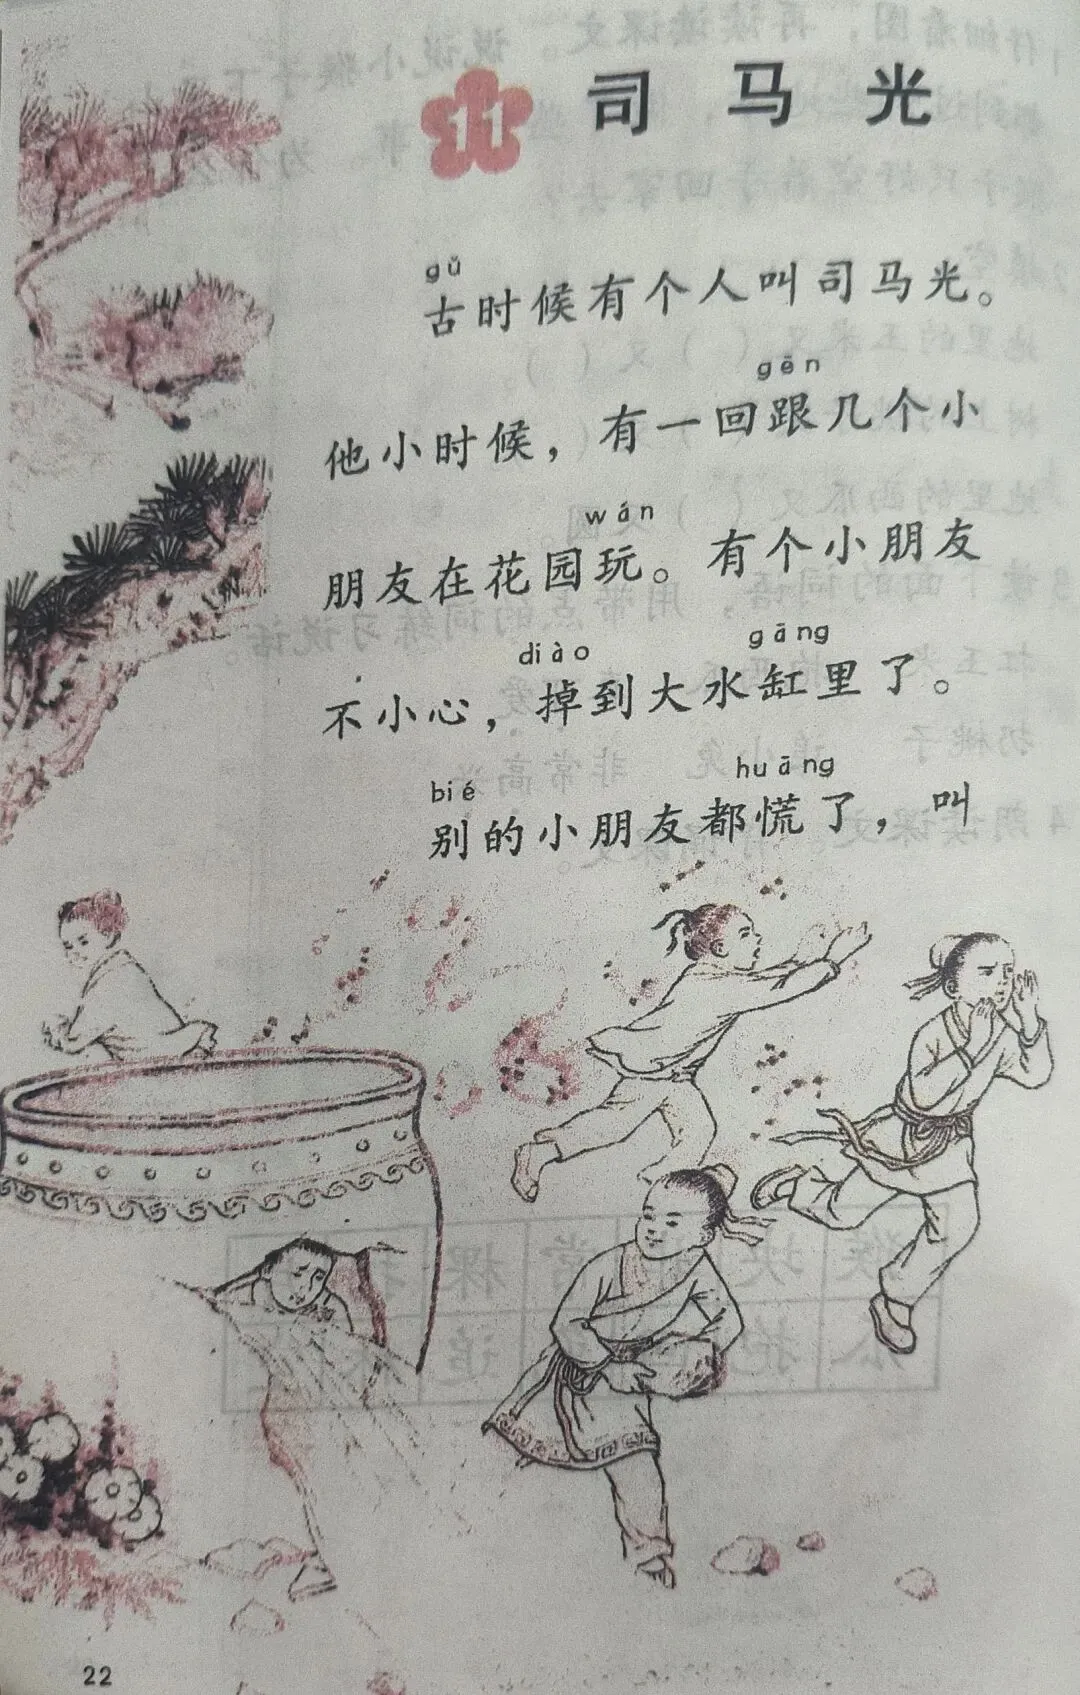 11 司马光
gǔ
古时候有个人叫司马光。
gēn
他小时候，有一回跟几个小
wán
朋友在花园玩。有个小朋友
diào gāng
不小心，掉到大水缸里了。
bié huāng
别的小朋友都慌了，叫
22